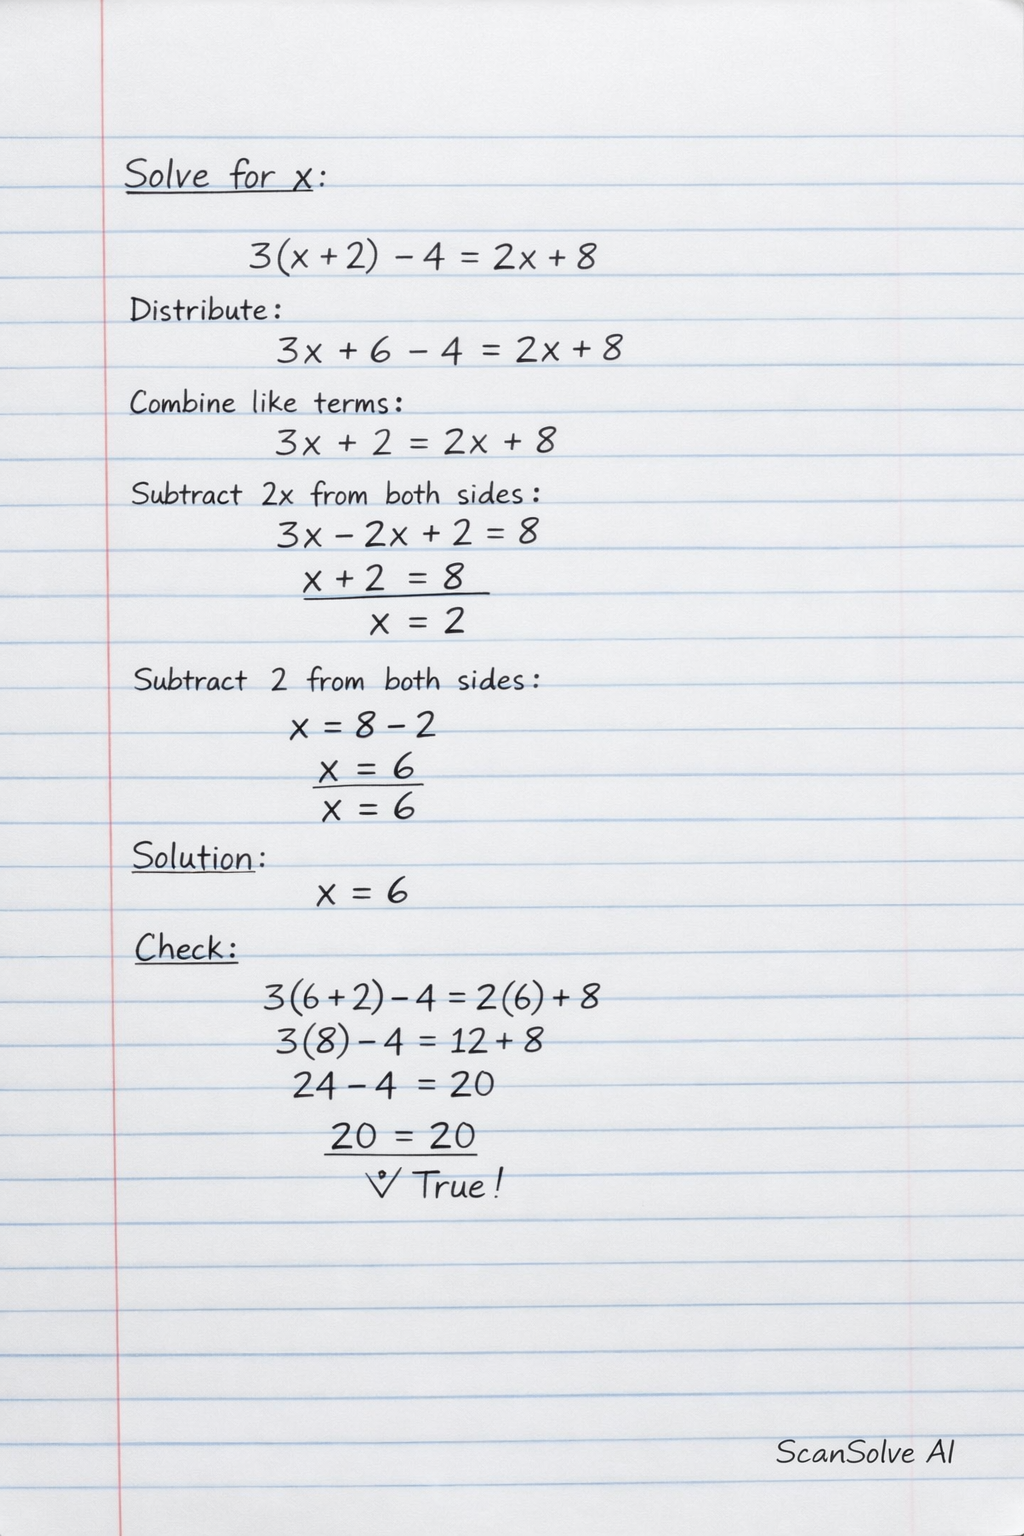 Solve for x:
3(x + 2) - 4 = 2x + 8
Distribute:
3x + 6 - 4 = 2x + 8
Combine like terms:
3x + 2 = 2x + 8
Subtract 2x from both sides:
3x - 2x + 2 = 8
x + 2 = 8
x = 2
Subtract 2 from both sides:
x = 8 - 2
x = 6
x = 6
Solution:
x = 6
Check:
3(6 + 2) - 4 = 2(6) + 8
3(8) - 4 = 12 + 8
24 - 4 = 20
20 = 20
True!
ScanSolve AI